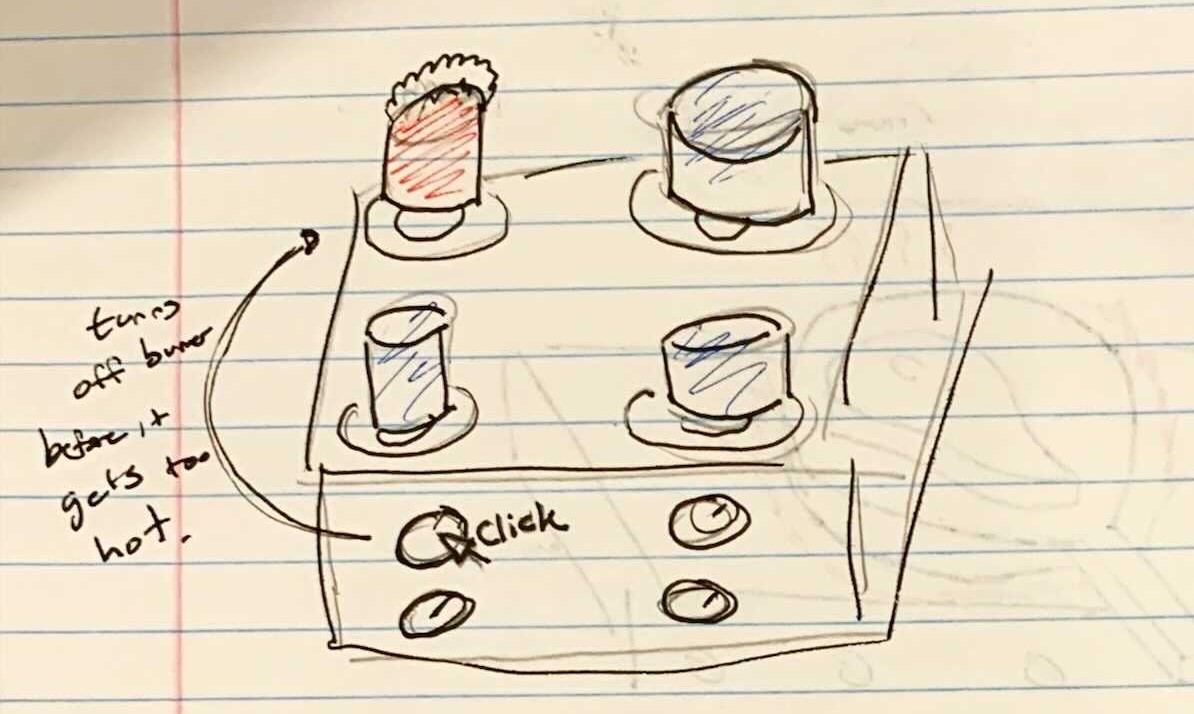 turns
off burner
before it
gets too
hot.
Click